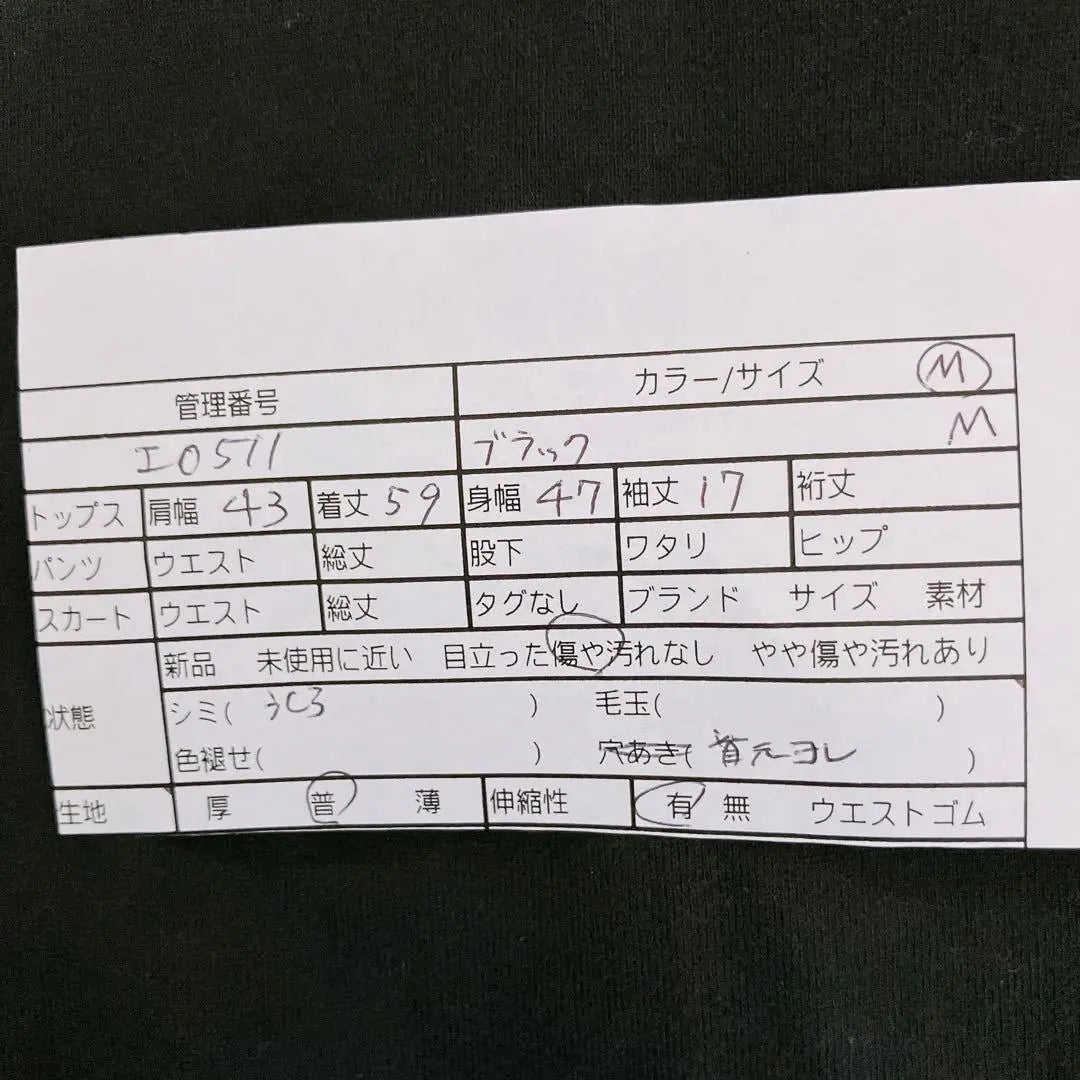 管理番号 カラー/サイズ M
I0571 ブラック M
トップス 肩幅 43 着丈 59 身幅 47 袖丈 17 裄丈
パンツ ウエスト 総丈 股下 ワタリ ヒップ
スカート ウエスト 総丈 タグなし ブランド サイズ 素材
新品 未使用に近い 目立った傷や汚れなし やや傷や汚れあり
状態 シミ( うしろ ) 毛玉( )
色褪せ( ) 穴あき( 首元ヨレ )
生地 厚 普 薄 伸縮性 有 無 ウエストゴム